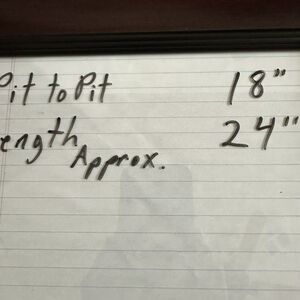 Pit to Pit 18"
ength 24"
Approx.